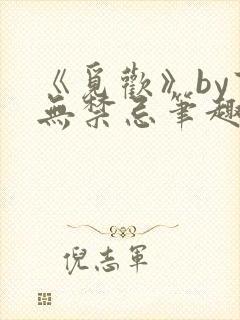 《覓歡》by
無禁忌筆趣
倪志軍